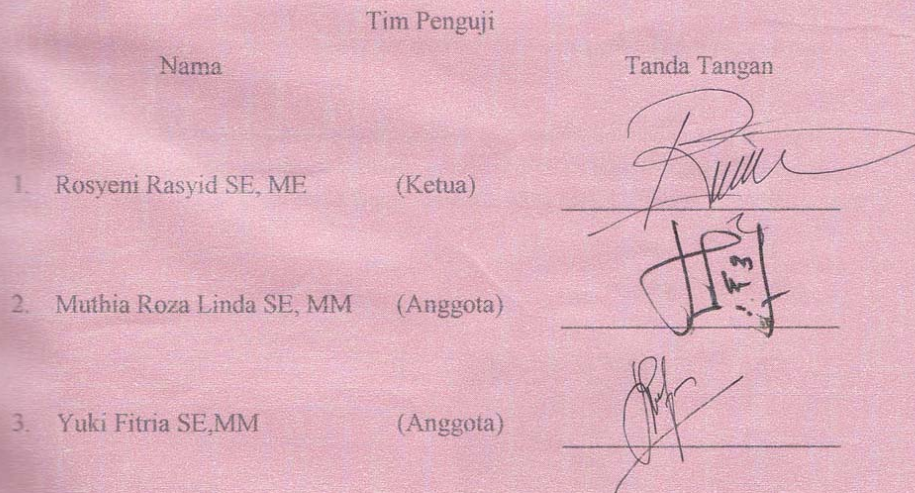 Tim Penguji
Nama Tanda Tangan
1. Rosyeni Rasyid SE, ME (Ketua)
2. Muthia Roza Linda SE, MM (Anggota)
3. Yuki Fitria SE,MM (Anggota)